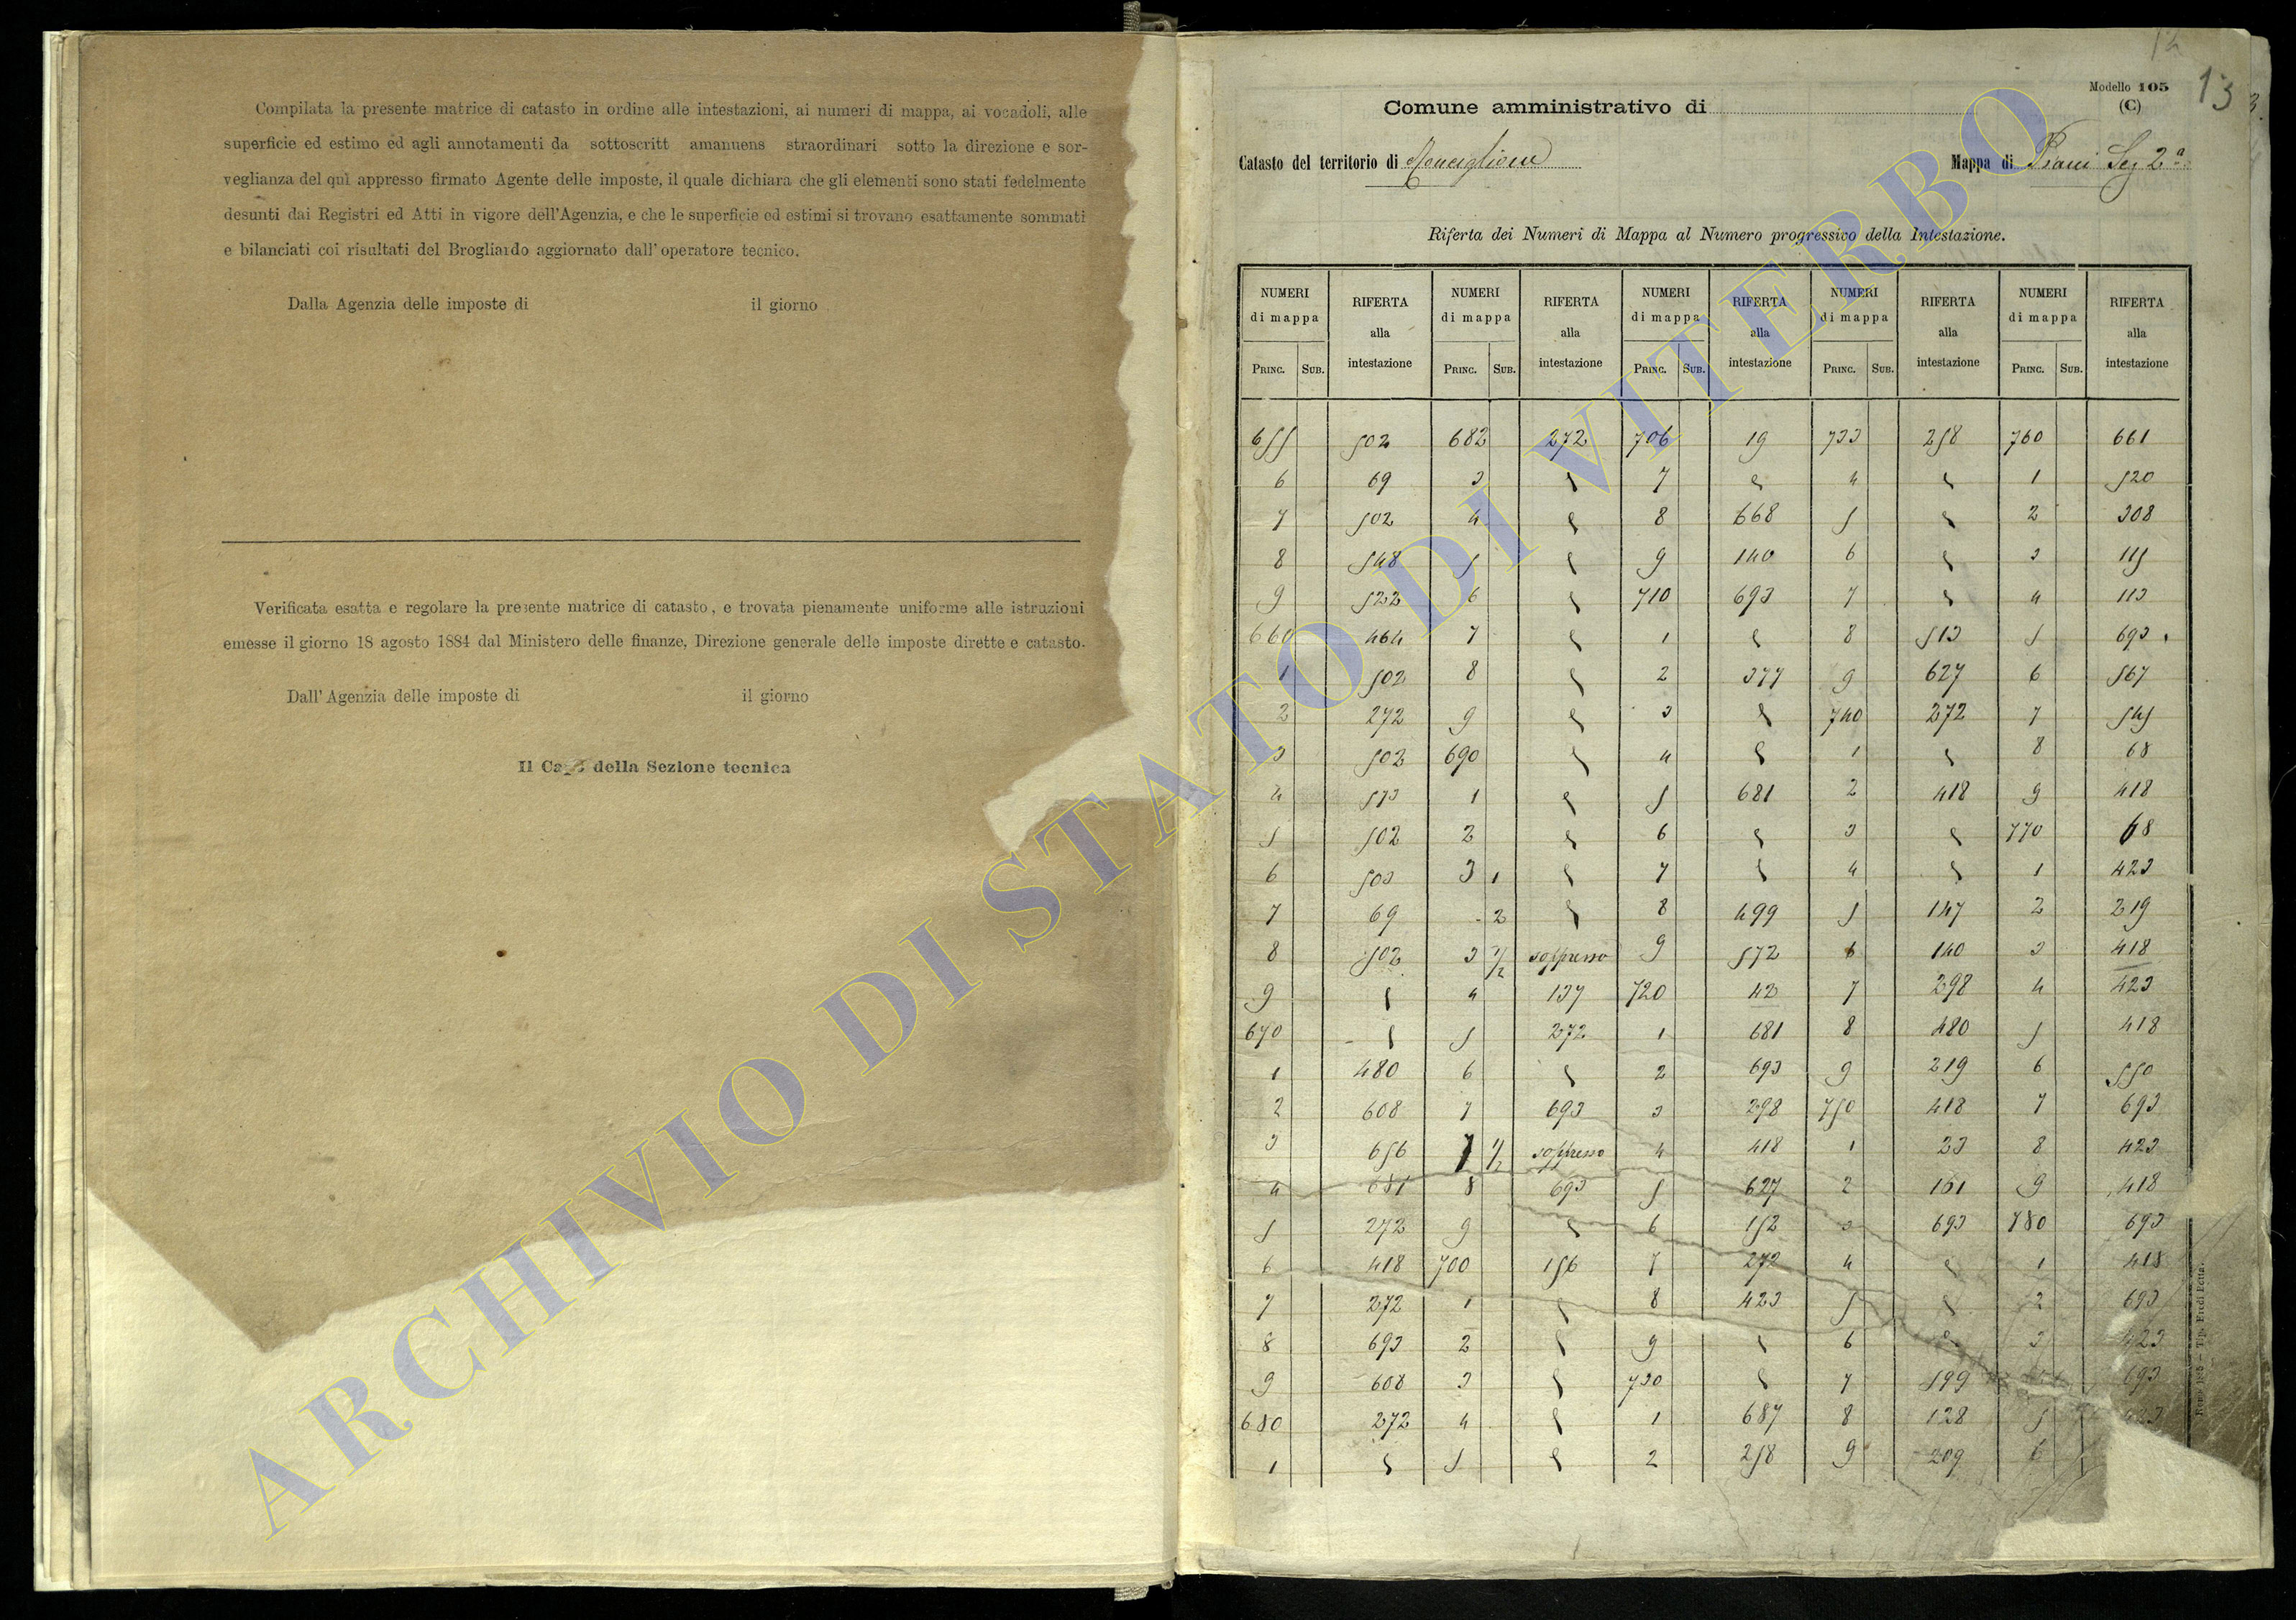 Compilata la presente matrice di catasto in ordine alle intestazioni, ai numeri di mappa, ai vocadoli, alle
superficie ed estimo ed agli annotamenti da sottoscritt amanuens straordinari sotto la direzione e sor-
veglianza del quì appresso firmato Agente delle imposte, il quale dichiara che gli elementi sono stati fedelmente
desunti dai Registri ed Atti in vigore dell'Agenzia, e che le superficie ed estimi si trovano esattamente sommati
e bilanciati coi risultati del Brogliardo aggiornato dall' operatore tecnico.
Dalla Agenzia delle imposte di il giorno
Verificata esatta e regolare la presente matrice di catasto, e trovata pienamente uniforme alle istruzioni
emesse il giorno 18 agosto 1884 dal Ministero delle finanze, Direzione generale delle imposte dirette e catasto.
Dall' Agenzia delle imposte di il giorno
Il Capo della Sezione tecnica
13
Modello 105
(C)
Comune amministrativo di
Catasto del territorio di Ronciglione Mappa di Piani Sez 2a
Riferta dei Numeri di Mappa al Numero progressivo della Intestazione.
NUMERI di mappa RIFERTA alla intestazione NUMERI di mappa RIFERTA alla intestazione NUMERI di mappa RIFERTA alla intestazione NUMERI di mappa RIFERTA alla intestazione NUMERI di mappa RIFERTA alla intestazione
PRINC. SUB. PRINC. SUB. PRINC. SUB. PRINC. SUB. PRINC. SUB.
655 502 682 272 706 19 733 258 760 661
6 69 3 7 4 1 520
7 502 4 8 668 5 2 308
8 548 5 9 140 6 3 115
9 522 6 710 693 7 4 113
660 464 7 1 8 513 5 693
1 502 8 2 377 9 627 6 567
2 272 9 3 740 272 7 545
3 502 690 4 1 8 68
4 573 1 5 681 2 418 9 418
5 502 2 6 3 770 68
6 503 3 1 7 4 1 423
7 69 2 8 499 5 147 2 219
8 502 3 1/2 soppresso 9 572 6 140 3 418
9 4 137 720 43 7 298 4 423
670 5 272 1 681 8 480 5 418
1 480 6 2 693 9 219 6 550
2 608 7 693 3 298 750 418 7 693
3 656 7 1/2 soppresso 4 418 1 23 8 423
4 681 8 693 5 627 2 161 9 418
5 272 9 6 152 3 693 780 693
6 418 700 156 7 272 4 1 418
7 272 1 8 423 5 2 693
8 693 2 9 6 3 423
9 608 3 730 7 599 693
680 272 4 1 687 8 128 5 423
1 5 2 258 9 209 6
ARCHIVIO DI STATO DI VITERBO